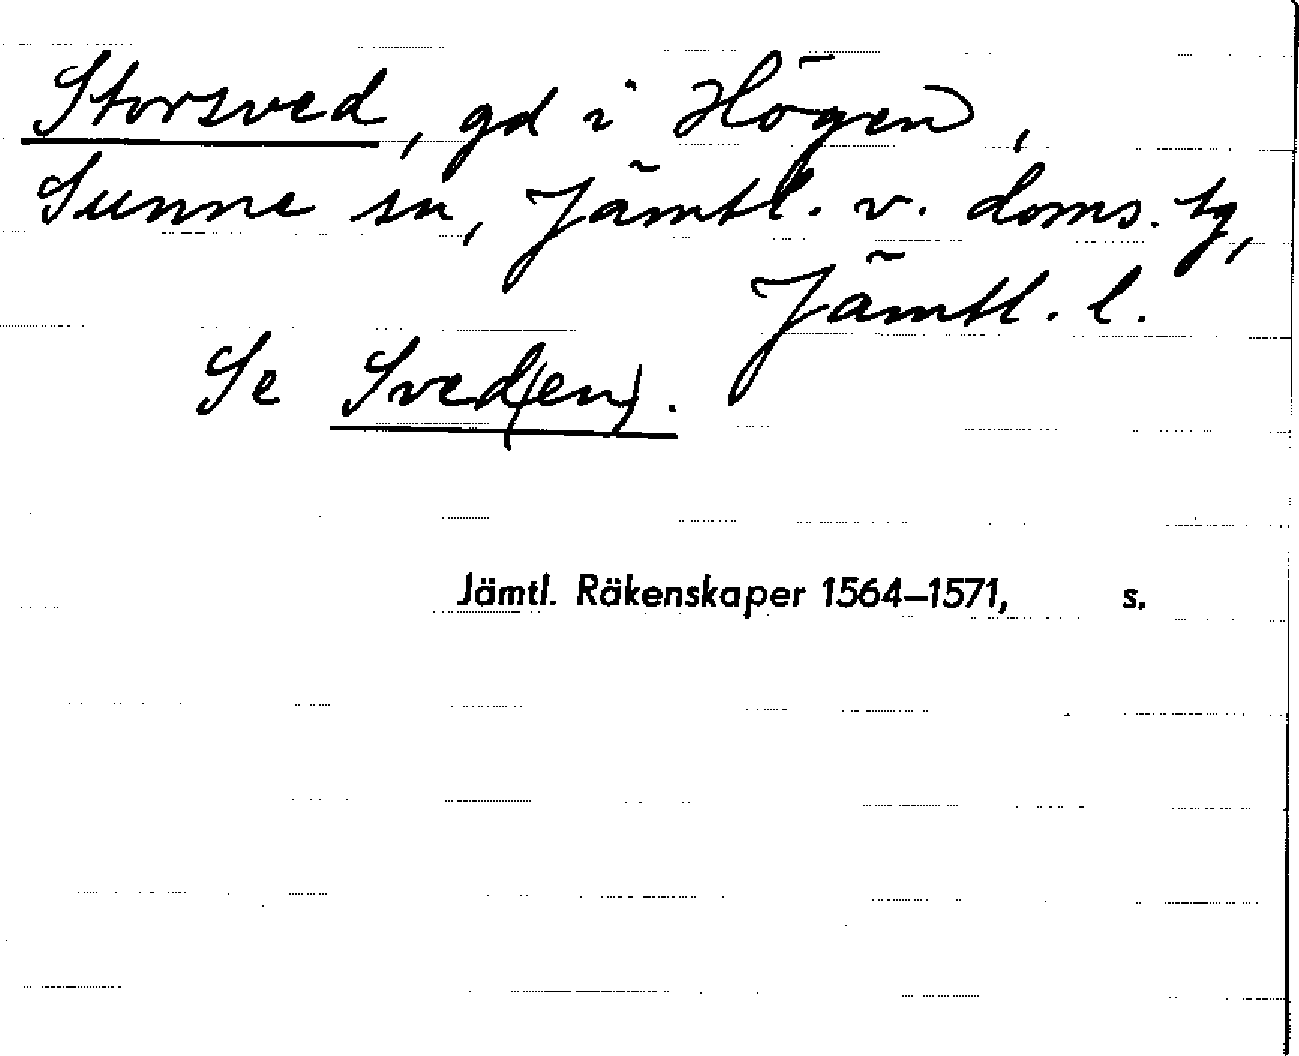 Storsved, gd i Högen,
Sunne sn, Jämtl. v. doms. tg,
Jämtl. l.
Se Sved(en).
Jämtl. Räkenskaper 1564–1571, s.